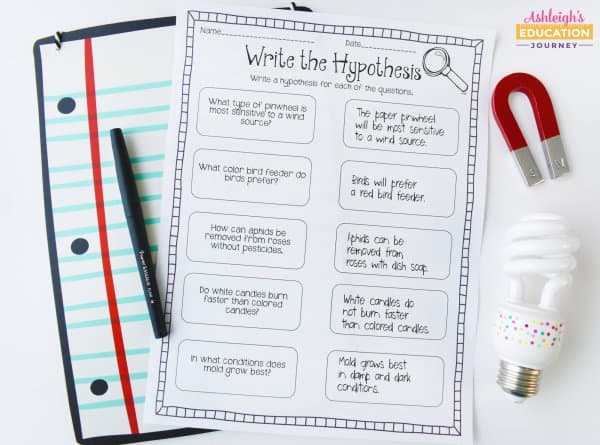 Ashleigh's
EDUCATION
JOURNEY
Name Date
Write the Hypothesis
Write a hypothesis for each of the questions.
What type of pinwheel is
most sensitive to a wind
source?
The paper pinwheel
will be most sensitive
to a wind source.
What color bird feeder do
birds prefer?
Birds will prefer
a red bird feeder.
How can aphids be
removed from roses
without pesticides.
Aphids can be
removed from
roses with dish soap.
Do white candles burn
faster than colored
candles?
White candles do
not burn faster
than colored candles.
In what conditions does
mold grow best?
Mold grows best
in damp and dark
conditions.